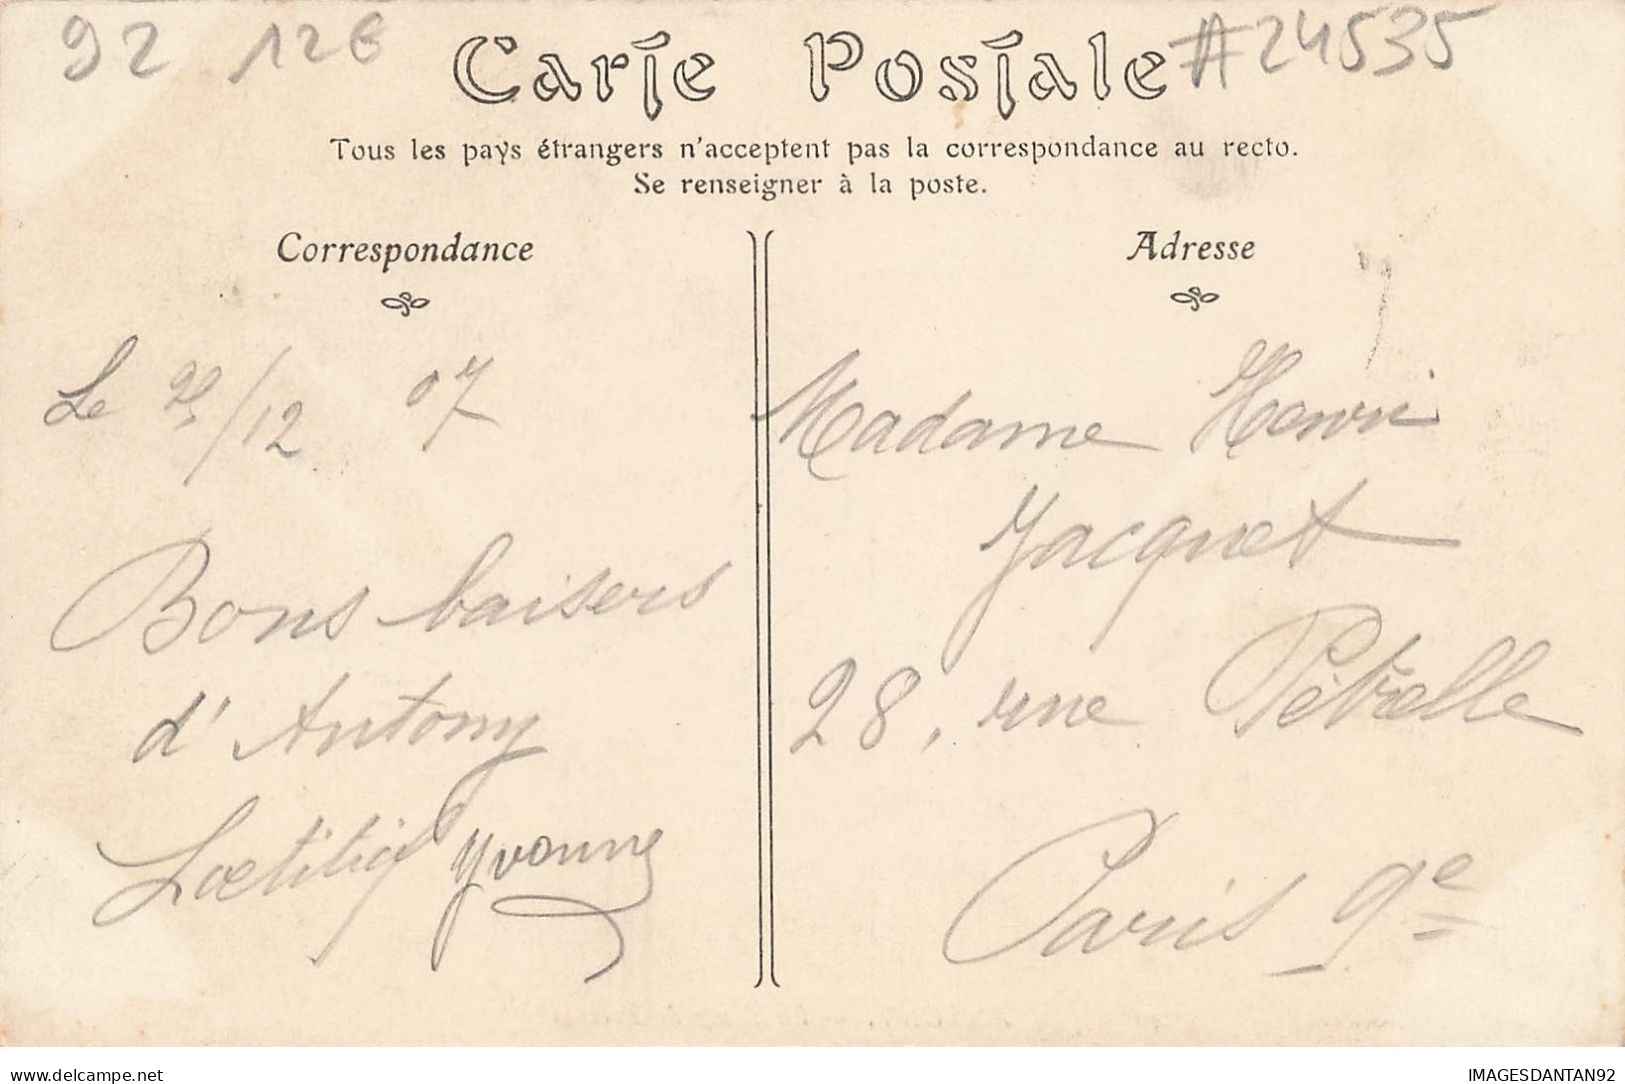 92 12€ #24535
Carte Postale
Tous les pays étrangers n'acceptent pas la correspondance au recto.
Se renseigner à la poste.
Correspondance
Le /12 07
Bons baisers
d'Antony
Lœtitia Yvonne
Adresse
Madame Henri
Jacquet
28, rue Pétrelle
Paris 9e
www.delcampe.net
IMAGESDANTAN92